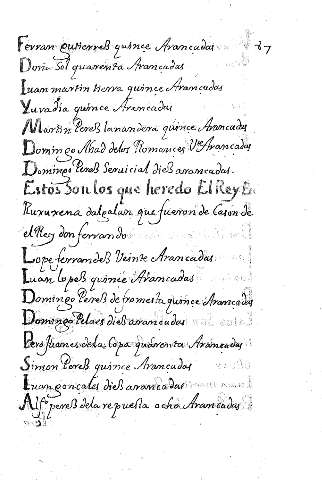 Ferran gutierreß quince Arancadas 67
Doña Sol quarenta Arancadas
Iuan martin tierra quince Arancadas
Yuvadia quince Arencadas
Martin Pereß lavandera quince Arancadas
Domingo Abad delos Romances Vte Arancadas
Domingo Pereß Seruicial dieß arancadas
Estos Son los que heredo El Rey En
Rururena dalgalan que fueron de Cason de
el Rey don ferrando
Lope ferrandeß Veinte Arancadas
Iuan lopeß quince Arancadas
Domingo Pereß de fromesta quince Arancadas
Domingo Pelaes dieß arrancadas
Pero Iuanes de la Copa quarenta Arancadas
Simon Pereß quince Arancadas
Iuan gonçales dieß arancadas
Alfo pereß de la repuesta ocho Arancadas